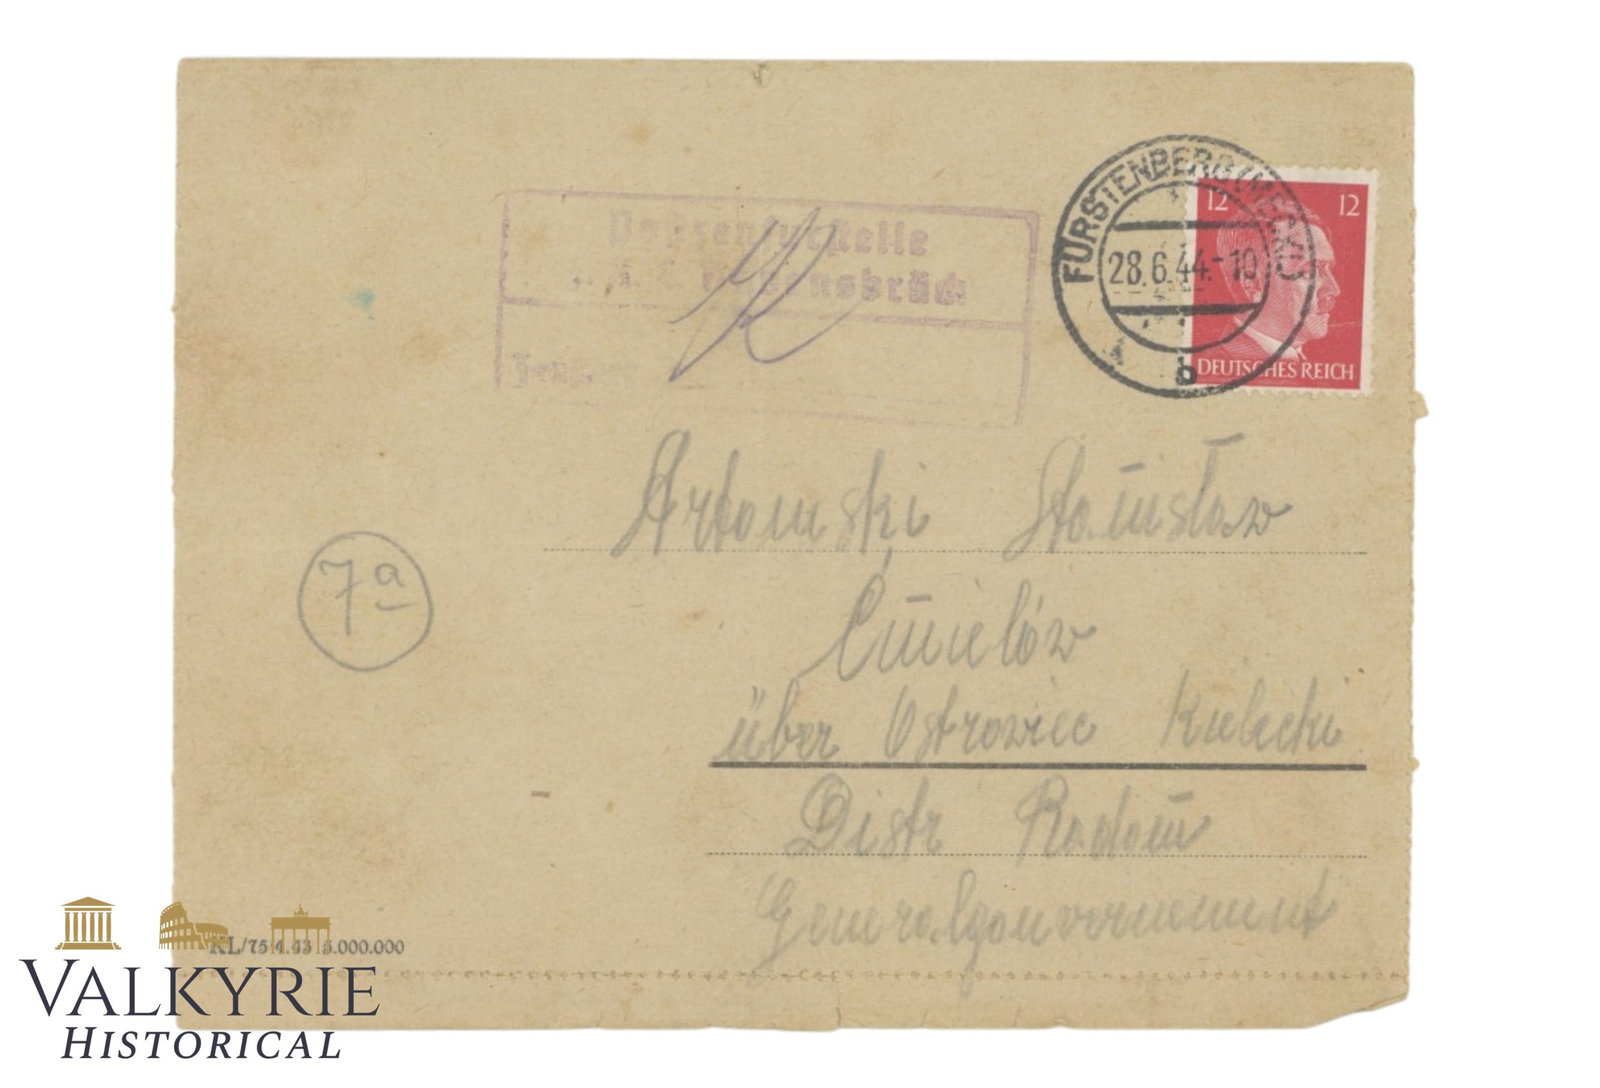 FÜRSTENBERG (MECKL)
28.6.44.-19
b
12 12
DEUTSCHES REICH
Postzensurstelle
Ravensbrück
Artomski Stanisław
7a
Ćmielów
über Ostrowiec Kielecki
Distr Radom
Generalgouvernement
KL/75 4.43 5.000.000
VALKYRIE
HISTORICAL